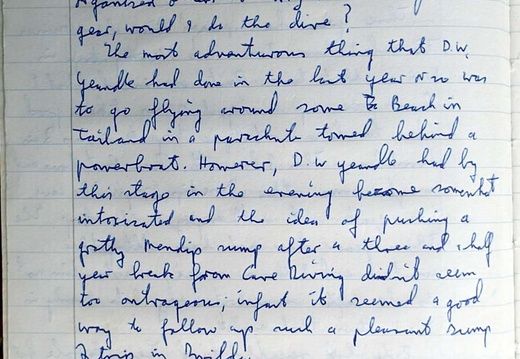 gear, would I do the dive?
The most adventurous thing that D.W.
Yeandle had done in the last year or so was
to go flying around some Beach in
Tailand in a parachute towed behind a
powerboat. However, D.W Yeandle had by
this stage in the evening become somewhat
intoxicated and the idea of pushing a
grotty Mendip sump after a three and a half
year break from Cave Diving didn't seem
too outrageous; infact it seemed a good
way to follow up such a pleasant sump
trip in